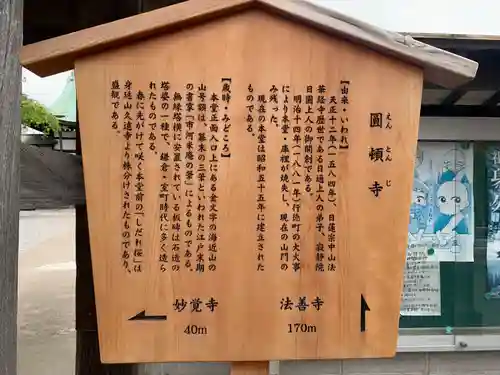 圓頓寺
えんとんじ
【由来・いわれ】
天正十二年(一五八四年)、日蓮宗中山法
華経寺歴世である日通上人の弟子、寂静院
日圓上人の御開創である。
明治十四年(一八八一年)行徳町の大火事
により本堂・庫裡が焼失し、現在の山門の
み残った。
現在の本堂は昭和五十五年に建立された
ものである。
【歳時・みどころ】
本堂正面入口上にある金文字の海近山の
山号額は、幕末の三筆といわれた江戸末期
の書家、「市河米庵の筆」によるものである。
無縁塔横に安置されている板碑は石造の
塔婆の一種で、鎌倉・室町時代に多く造ら
れたものである。
春に先がけて咲く本堂前の「しだれ桜」は
身延山久遠寺より株分けされたものであり、
盛観である。
法善寺
170m
妙覚寺
40m